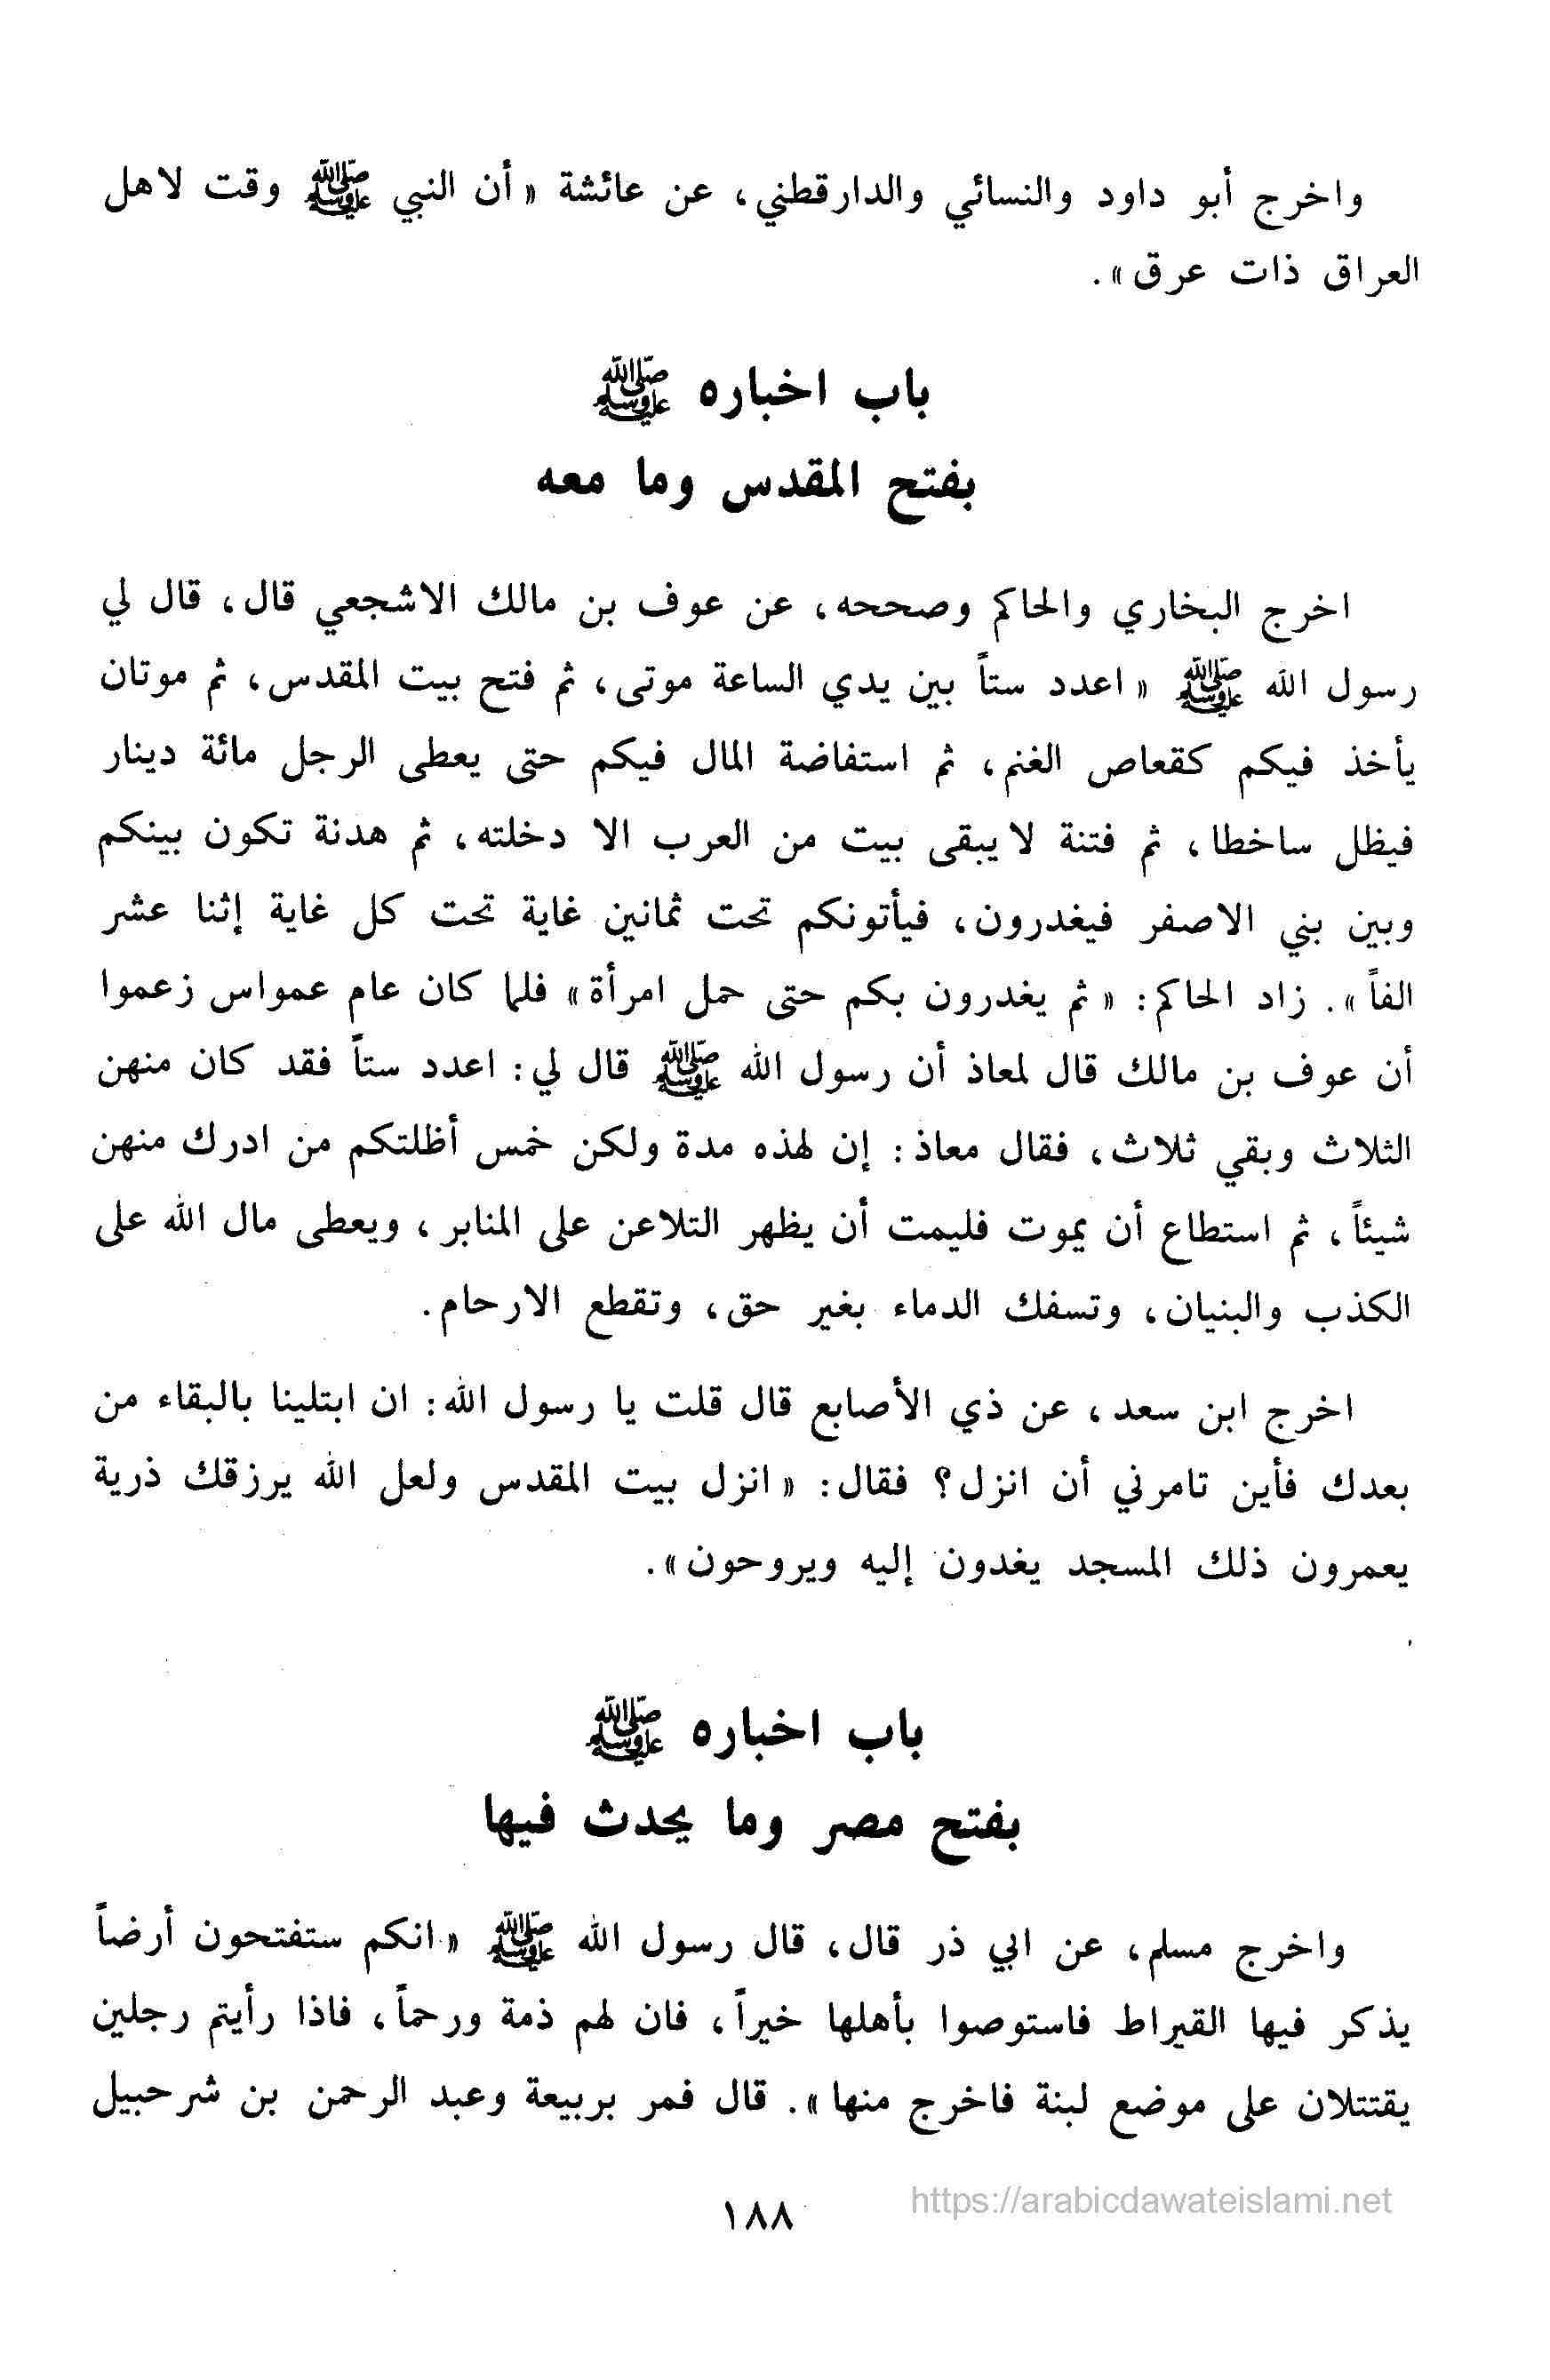 واخرج أبو داود والنسائي والدارقطني، عن عائشة « أن النبي ﷺ وقت لاهل
العراق ذات عرق ».
باب اخباره ﷺ
بفتح المقدس وما معه
اخرج البخاري والحاكم وصححه، عن عوف بن مالك الاشجعي قال، قال لي
رسول الله ﷺ « اعدد ستاً بين يدي الساعة موتى، ثم فتح بيت المقدس، ثم موتان
يأخذ فيكم كقعاص الغنم، ثم استفاضة المال فيكم حتى يعطى الرجل مائة دينار
فيظل ساخطا، ثم فتنة لا يبقى بيت من العرب الا دخلته، ثم هدنة تكون بينكم
وبين بني الاصفر فيغدرون، فيأتونكم تحت ثمانين غاية تحت كل غاية إثنا عشر
الفاً ». زاد الحاكم: « ثم يغدرون بكم حتى حمل امرأة » فلما كان عام عمواس زعموا
أن عوف بن مالك قال لمعاذ أن رسول الله ﷺ قال لي: اعدد ستاً فقد كان منهن
الثلاث وبقي ثلاث، فقال معاذ: إن لهذه مدة ولكن خمس أظلتكم من ادرك منهن
شيئاً، ثم استطاع أن يموت فليمت أن يظهر التلاعن على المنابر، ويعطى مال الله على
الكذب والبنيان، وتسفك الدماء بغير حق، وتقطع الارحام.
اخرج ابن سعد، عن ذي الأصابع قال قلت يا رسول الله: ان ابتلينا بالبقاء من
بعدك فأين تامرني أن انزل؟ فقال: « انزل بيت المقدس ولعل الله يرزقك ذرية
يعمرون ذلك المسجد يغدون إليه ويروحون ».
باب اخباره ﷺ
بفتح مصر وما يحدث فيها
واخرج مسلم، عن ابي ذر قال، قال رسول الله ﷺ « انكم ستفتحون أرضاً
يذكر فيها القيراط فاستوصوا بأهلها خيراً، فان لهم ذمة ورحماً، فاذا رأيتم رجلين
يقتتلان على موضع لبنة فاخرج منها ». قال فمر بربيعة وعبد الرحمن بن شرحبيل
١٨٨
https://arabicdawateislami.net